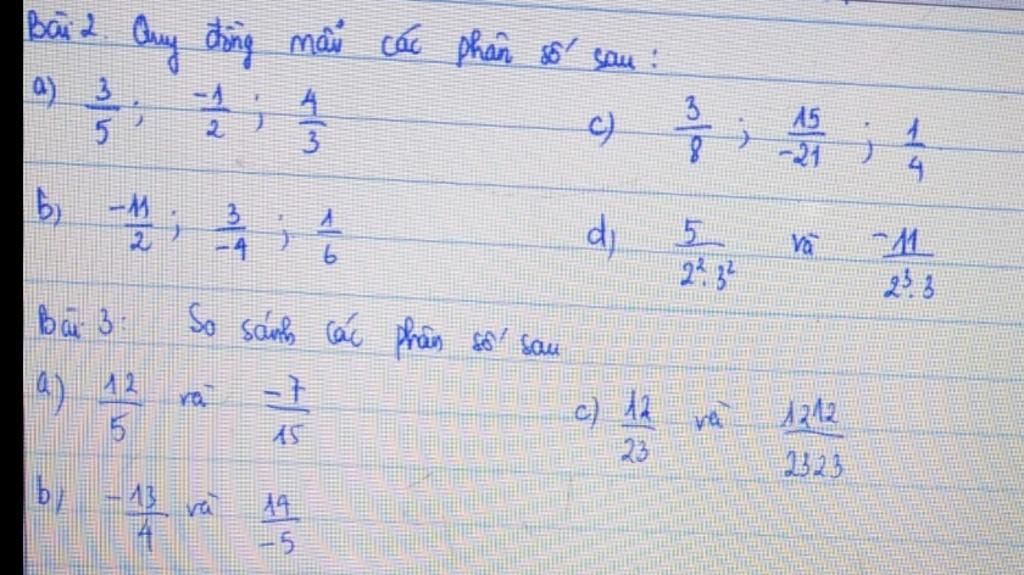 Bài 2. Quy đồng mẫu các phân số sau:
a) 3/5 ; -1/2 ; 4/3
c) 3/8 ; 15/-21 ; 1/4
b) -11/2 ; 3/-4 ; 1/6
d) 5/2².3² và -11/2³.3
Bài 3: So sánh các phân số sau
a) 12/5 và -7/15
c) 12/23 và 1212/2323
b) -13/4 và 14/-5